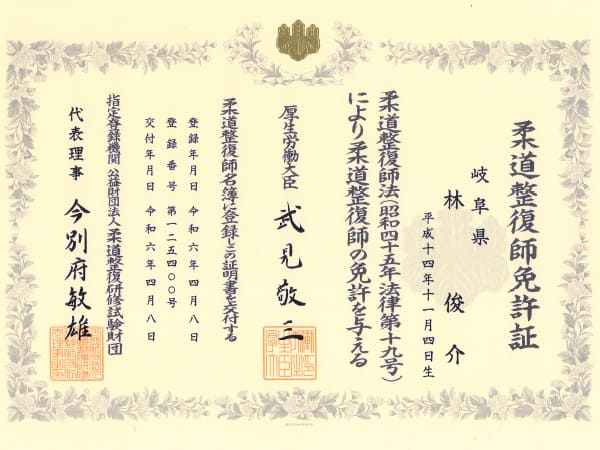 柔道整復師免許証
岐阜県
林俊介
平成十四年十一月四日生
柔道整復師法(昭和四十五年法律第十九号)
により柔道整復師の免許を与える
厚生労働大臣 武見敬三
柔道整復師名簿に登録しこの証明書を交付する
登録年月日 令和六年四月八日
登録番号 第一二五四〇〇号
交付年月日 令和六年四月八日
指定登録機関 公益財団法人柔道整復研修試験財団
代表理事 今別府敏雄